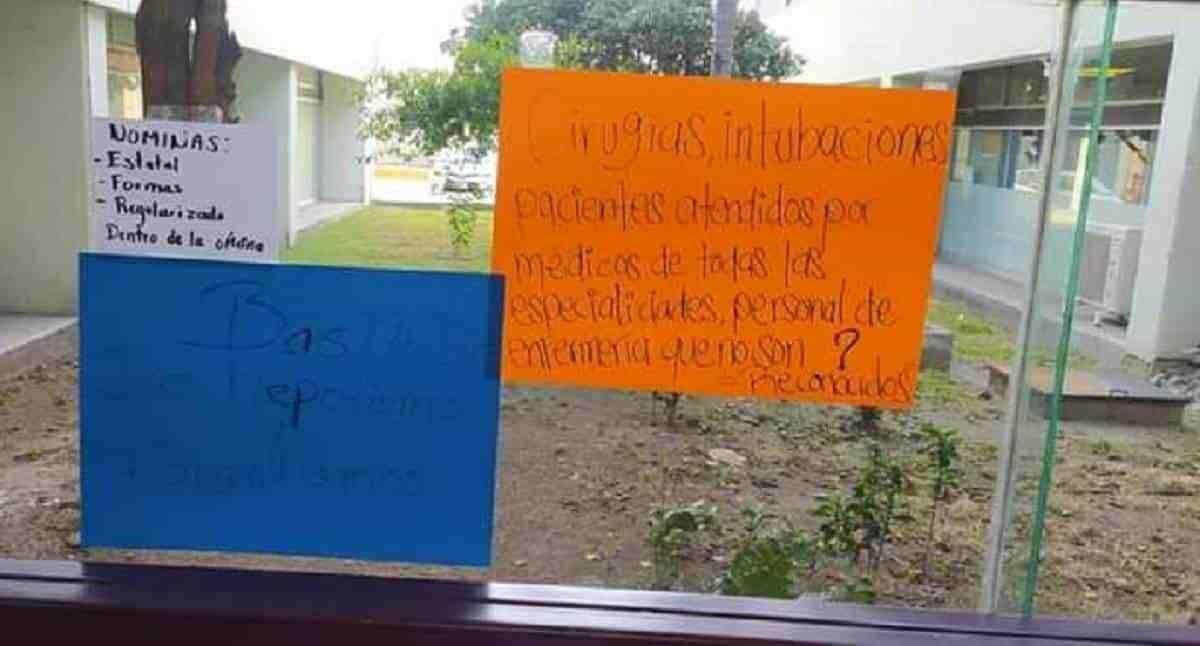 NOMINAS:
- Estatal
- Formas
- Regularizado
Dentro de la oficina
Cirugias, intubaciones
pacientes atendidos por
medicos de todas las
especialidades, personal de
enfermeria que no son ?
- Reconocidos
Bas